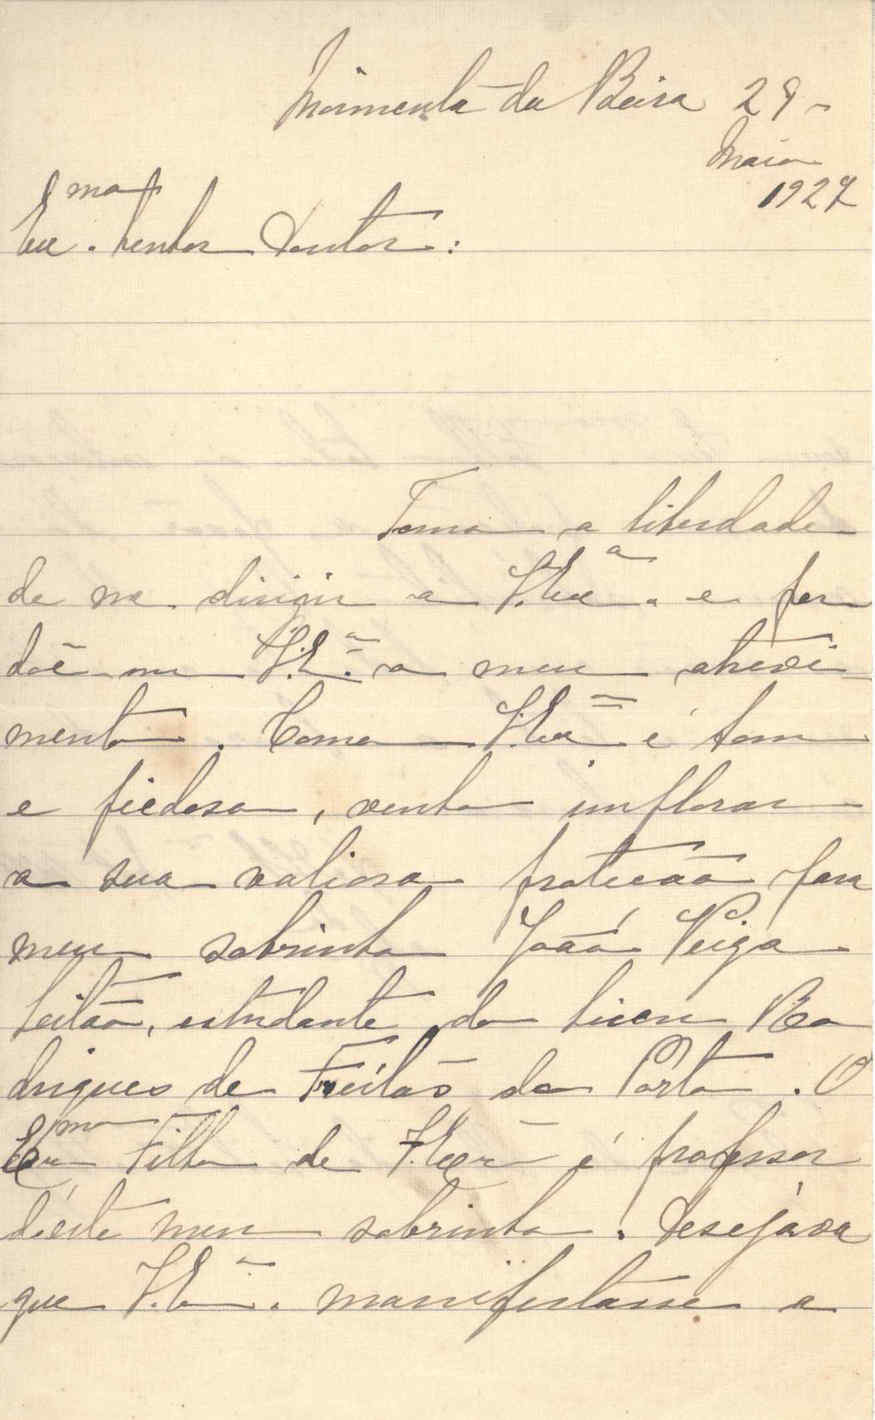 Moimenta da Beira 29-
Maio
1927
Exmo. Senhor Doutor:
Tomo a liberdade
de me dirigir a V. Exa. e per
dôe-me V. Ea. o meu atrevi-
mento. Como V. Exa é bom
e piedoso, venho implorar
a sua valiosa protecção para
meu sobrinho João Veiga
Leitão, estudante do liceu Ro
drigues de Freitas do Porto. O
Exmo Filho de V. Exa é professor
d'êste meu sobrinho. Desejava
que V. Ea. manifestasse a